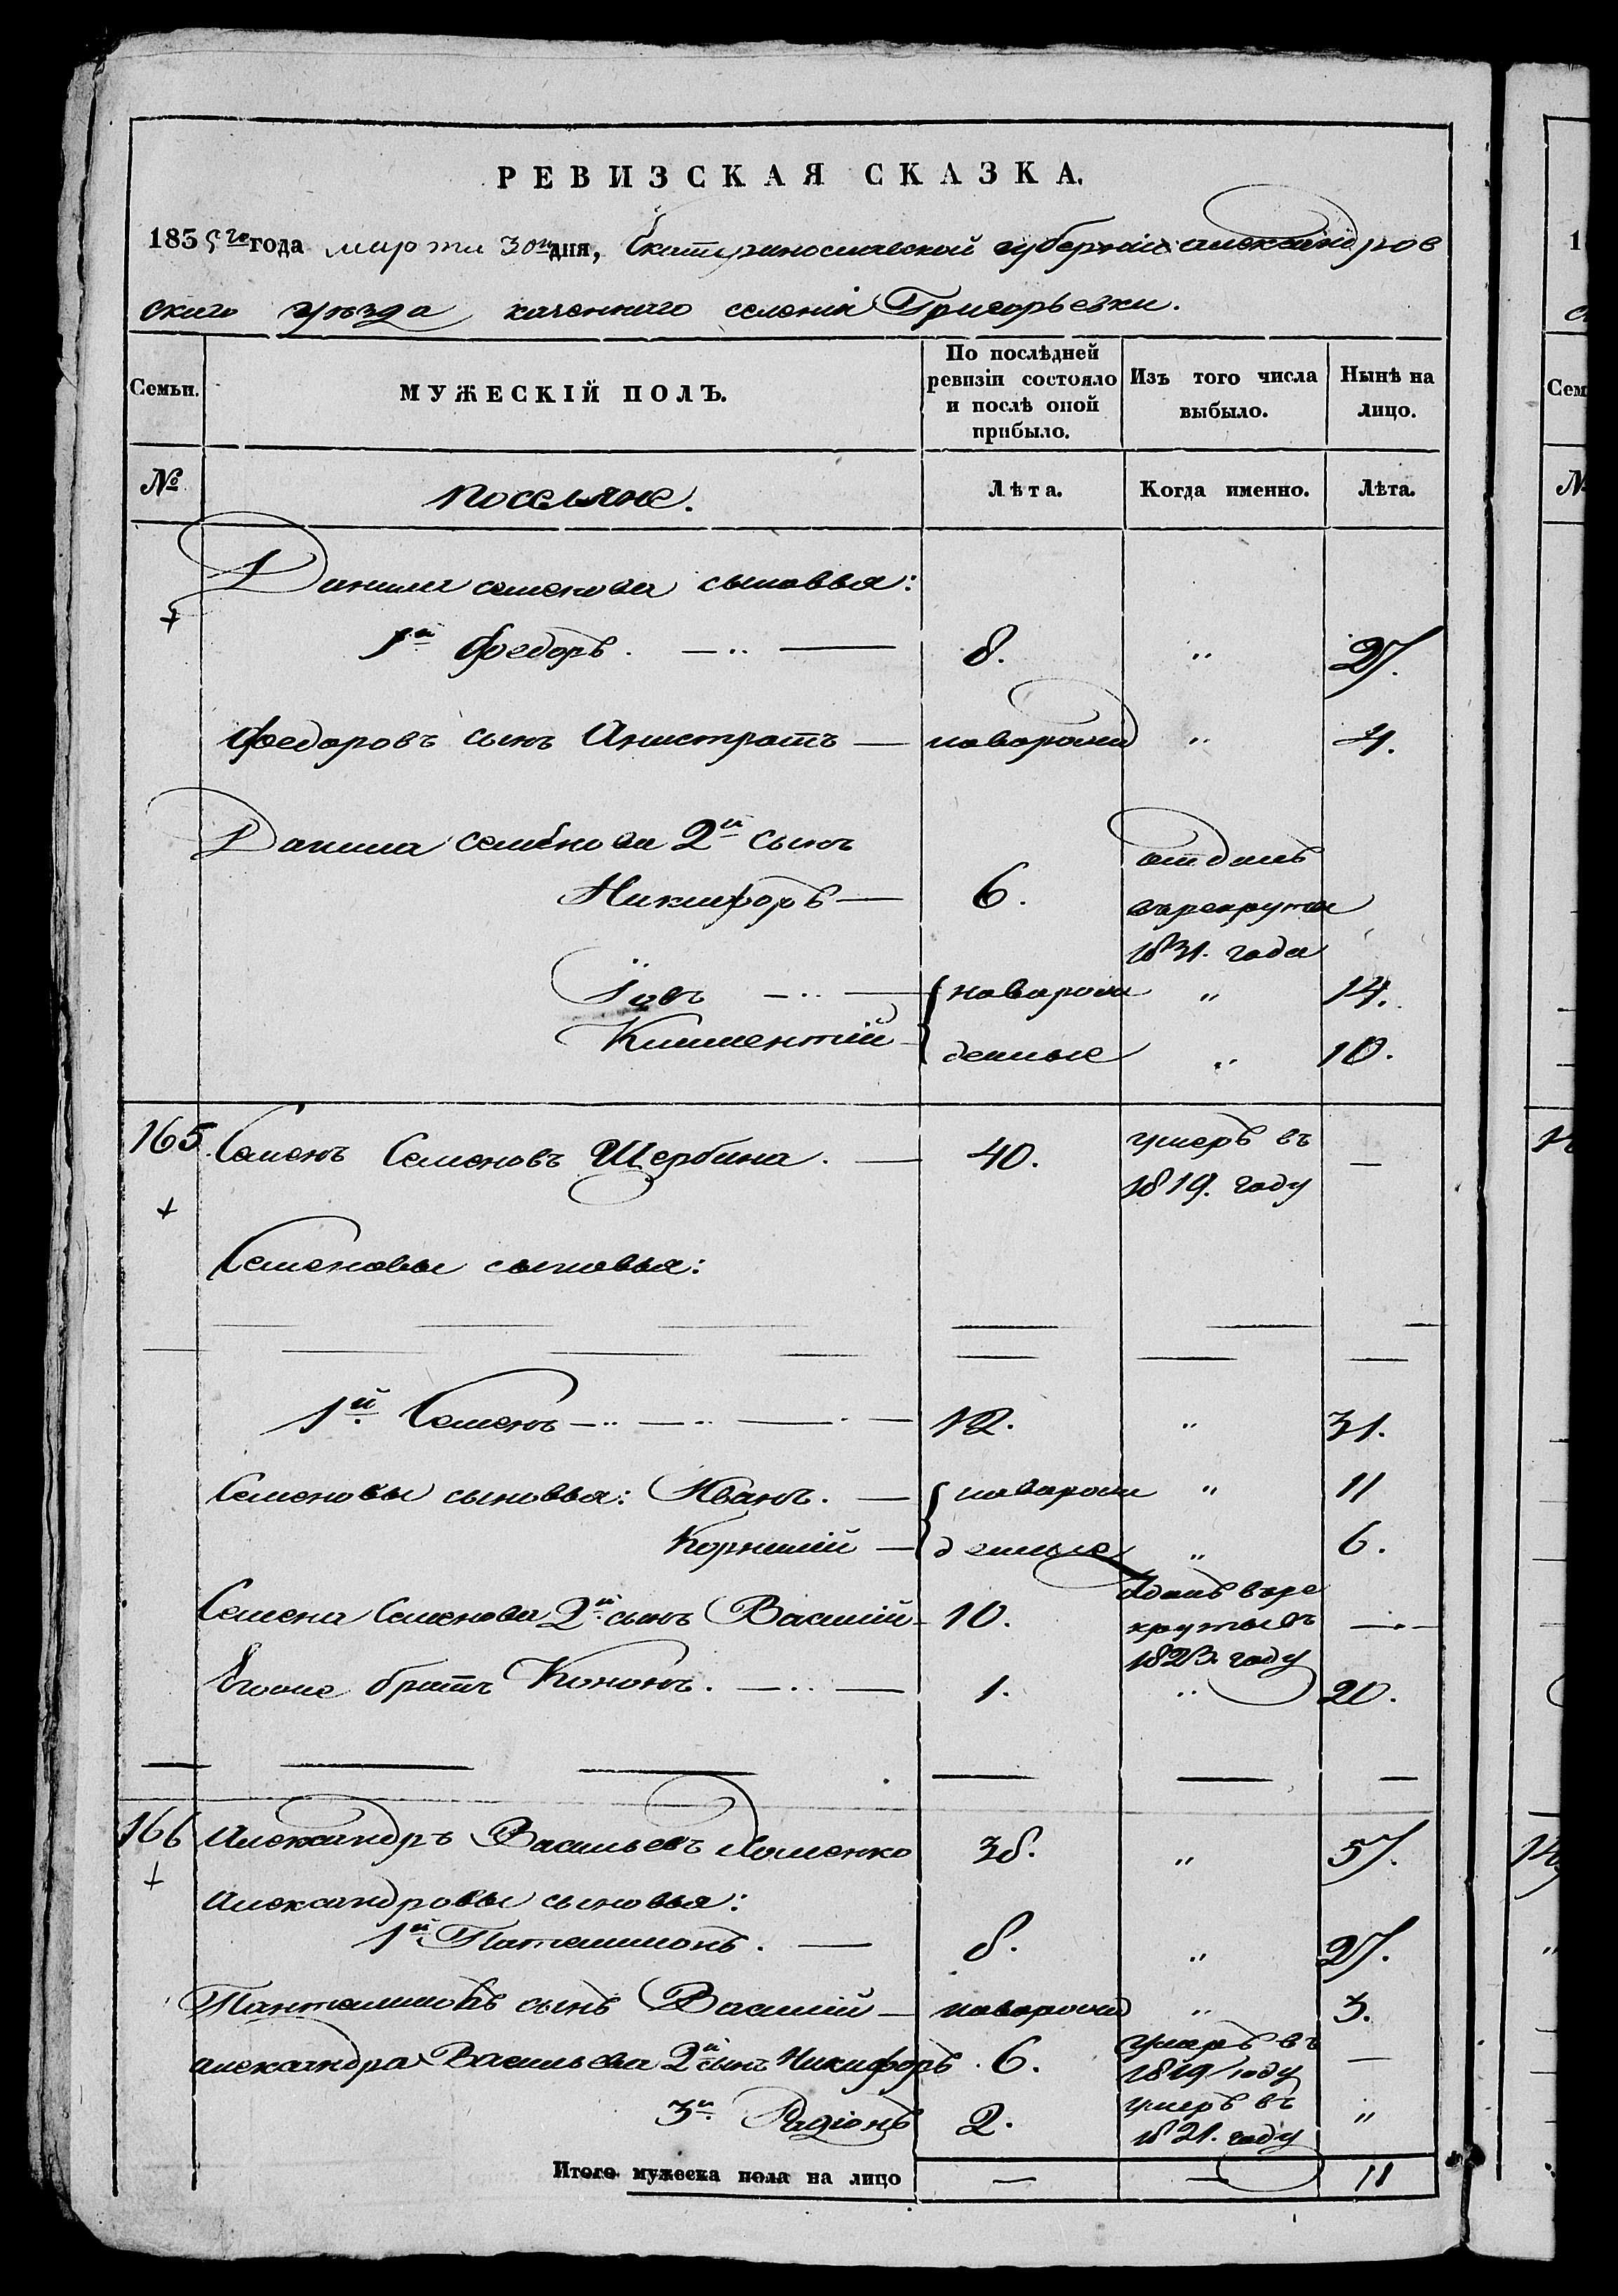 РЕВИЗСКАЯ СКАЗКА.
1835го года марта 30го дня, Екатеринославской губерніи александров
ского уѣзда казенного селенія Григорьевки.
Семьи. МУЖЕСКІЙ ПОЛЪ. По послѣдней ревизіи состояло и послѣ оной прибыло. Изъ того числа выбыло. Нынѣ на лицо.
№ поселяне. Лѣта. Когда именно. Лѣта.
Данила семенова сыновья:
1й Федоръ. 8. „ 27.
Федоровъ сынъ Анистратъ — наворожд „ 4.
Данила семенова 2й сынъ
Никифоръ — 6. отданъ
врекруты
1831. года
Іовъ — новорож „ 14.
Климентій денные „ 10.
165. Семенъ Семеновъ Щербина. — 40. умеръ въ —
1819. году
Семеновы сыновья:
1й Семенъ — 12. „ 31.
Семеновы сыновья: Иванъ. — новорож „ 11
Корнилій — денные „ 6.
Семена Семенова 2й сынъ Василій — 10. Отданъ вре
круты въ
1823. году
Егоже братъ Кононъ. — 1. „ 20.
166 Александръ Васильевъ Хоменко 38. „ 57.
Александровы сыновья:
1й Пателимонъ. — 8. „ 27.
Пантелимоновъ сынъ Василій — новорожд „ 3.
александра Васильева 2й сынъ Никифоръ. 6. умеръ въ —
1819 году
3й Радіонъ 2. умеръ въ „
1821. году
Итого мужеска пола на лицо — — 11